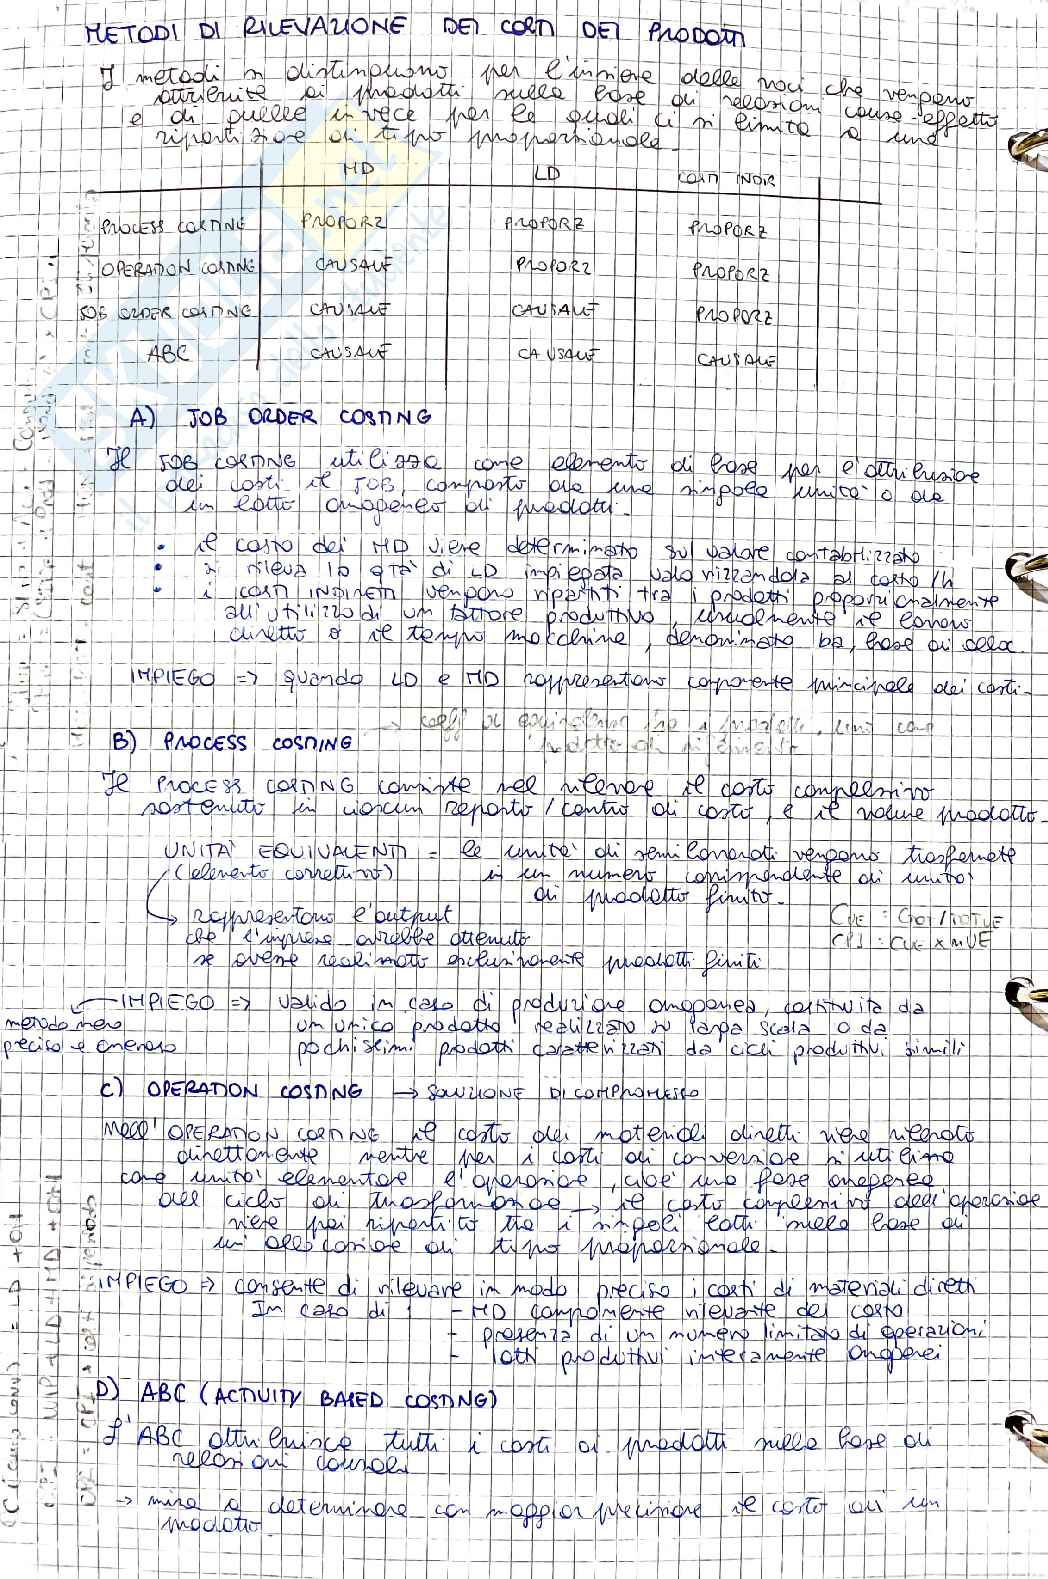 METODI DI RILEVAZIONE DEI COSTI DEI PRODOTTI
I metodi si distinguono per l'insieme delle voci che vengono
attribuite ai prodotti sulla base di relazioni causa-effetto
e di quelle invece per le quali ci si limita a una
ripartizione di tipo proporzionale.
MD LD COSTI INDIR
PROCESS COSTING PROPORZ PROPORZ PROPORZ
OPERATION COSTING CAUSALE PROPORZ PROPORZ
JOB ORDER COSTING CAUSALE CAUSALE PROPORZ
ABC CAUSALE CAUSALE CAUSALE
A) JOB ORDER COSTING
Il JOB COSTING utilizza come elemento di base per l'attribuzione
dei costi il JOB, composto da una singola unità o da
un lotto omogeneo di prodotti.
• il costo dei MD viene determinato sul valore contabilizzato
• si rileva la qtà di LD impiegata valorizzandola al costo/h
• i costi INDIRETTI vengono ripartiti tra i prodotti proporzionalmente
all'utilizzo di un fattore produttivo, usualmente il lavoro
diretto o il tempo macchina, denominato ba, base di alloc.
IMPIEGO => quando LD e MD rappresentano componente principale dei costi.
→ coeff di equivalenza
B) PROCESS COSTING
Il PROCESS COSTING consiste nel rilevare il costo complessivo
sostenuto in ciascun reparto/centro di costo, e il volume prodotto.
UNITA' EQUIVALENTI = le unità di semilavorati vengono trasferite
(elemento correttivo) in un numero corrispondente di unità
di prodotto finito.
rappresentano l'output
che l'impresa avrebbe ottenuto
se avesse realizzato esclusivamente prodotti finiti
CUE : COT/TOTUE
: CUE x nUE
IMPIEGO => valido in caso di produzione omogenea, costituita da
un unico prodotto realizzato su larga scala o da
pochissimi prodotti caratterizzati da cicli produttivi simili
metodo meno
preciso e oneroso
C) OPERATION COSTING → SOLUZIONE DI COMPROMESSO
Nell'OPERATION COSTING il costo dei materiali diretti viene rilevato
direttamente mentre per i costi di conversione si utilizza
come unità elementare l'operazione, cioè una fase omogenea
del ciclo di trasformazione → il costo complessivo dell'operazione
viene poi ripartito tra i singoli lotti sulla base di
un'allocazione di tipo proporzionale.
IMPIEGO => consente di rilevare in modo preciso i costi di materiali diretti
In caso di : - MD componente rilevante del costo
- presenza di un numero limitato di operazioni
- lotti produttivi internamente omogenei
D) ABC (ACTIVITY BASED COSTING)
L'ABC attribuisce tutti i costi ai prodotti sulla base di
relazioni causali
→ mira a determinare con maggior precisione il costo di un
prodotto.